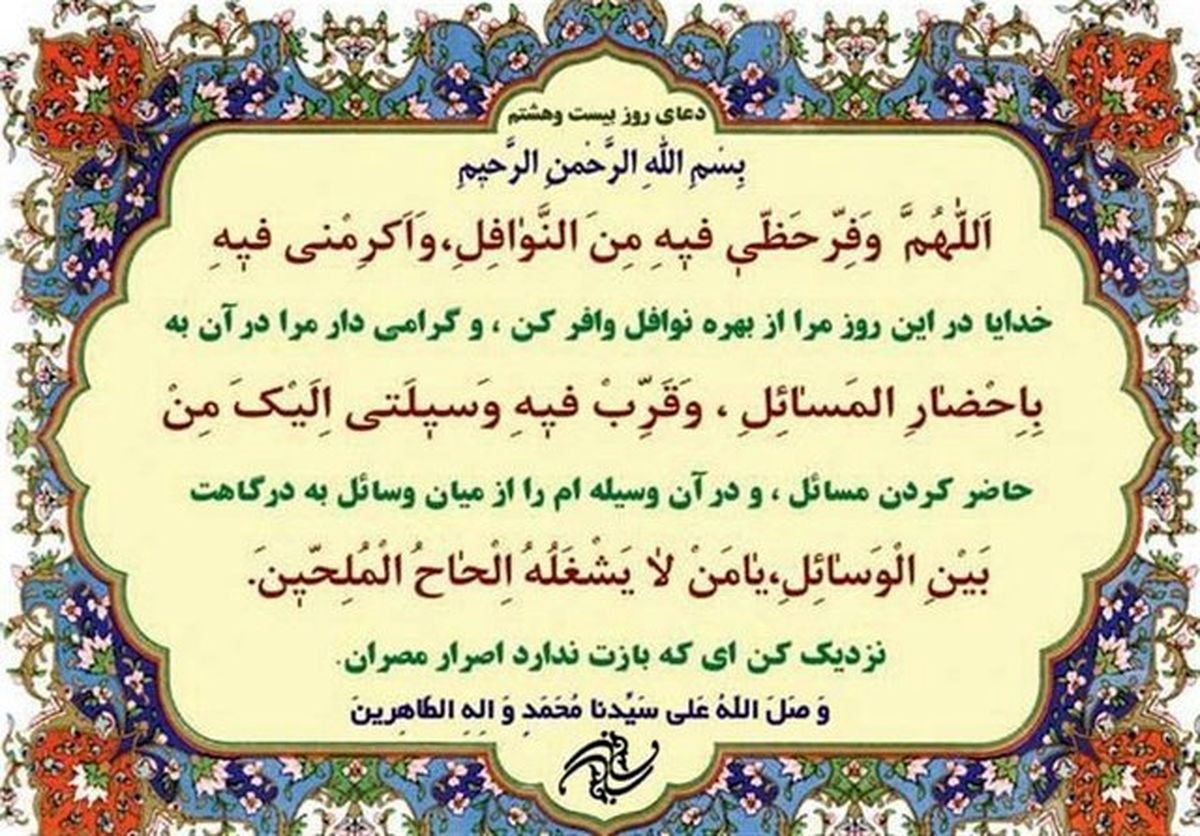 دعای روز بیست وهشتم
بِسْمِ اللهِ الرَّحْمنِ الرَّحیمِ
اَللّهُمَّ وَفِّرحَظّی فیهِ مِنَ النَّوافِلِ،وَاَکرِمْنی فیهِ
خدایا در این روز مرا از بهره نوافل وافر کن ، و گرامی دار مرا در آن به
بِاِحْضارِ المَسائِلِ ، وَقَرِّبْ فیهِ وَسیلَتی اِلَیْکَ مِنْ
حاضر کردن مسائل ، و در آن وسیله ام را از میان وسائل به درگاهت
بَیْنِ الْوَسائِلِ،یامَنْ لا یَشْغَلُهُ اِلْحاحُ الْمُلِحّینَ.
نزدیک کن ای که بازت ندارد اصرار مصران.
وَ صَلَ اللهُ عَلی سَیِّدنا مُحَمَدٍ وَ الِهِ الطّاهِرینَ